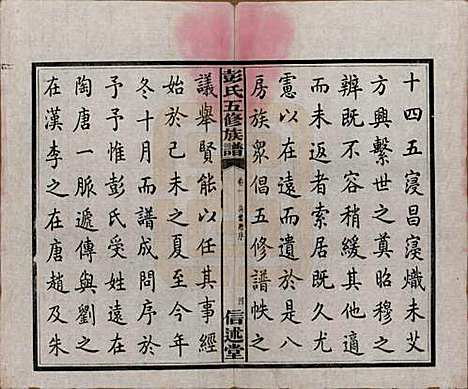 十四五寖昌寖熾未艾
方興繫世之奠昭穆之
辨既不容稍緩其他適
而未返者索居閑處尤
慮以在遠而遺於是八
房族眾倡五修譜帙之
彭氏五修族譜
卷一
四
信述堂
議舉賢能以任其事經
始於己未之夏至今年
冬十月而譜成問序於
予予惟彭氏受姓遠在
陶唐一脈遞傳與劉之
在漢李之在唐趙及朱